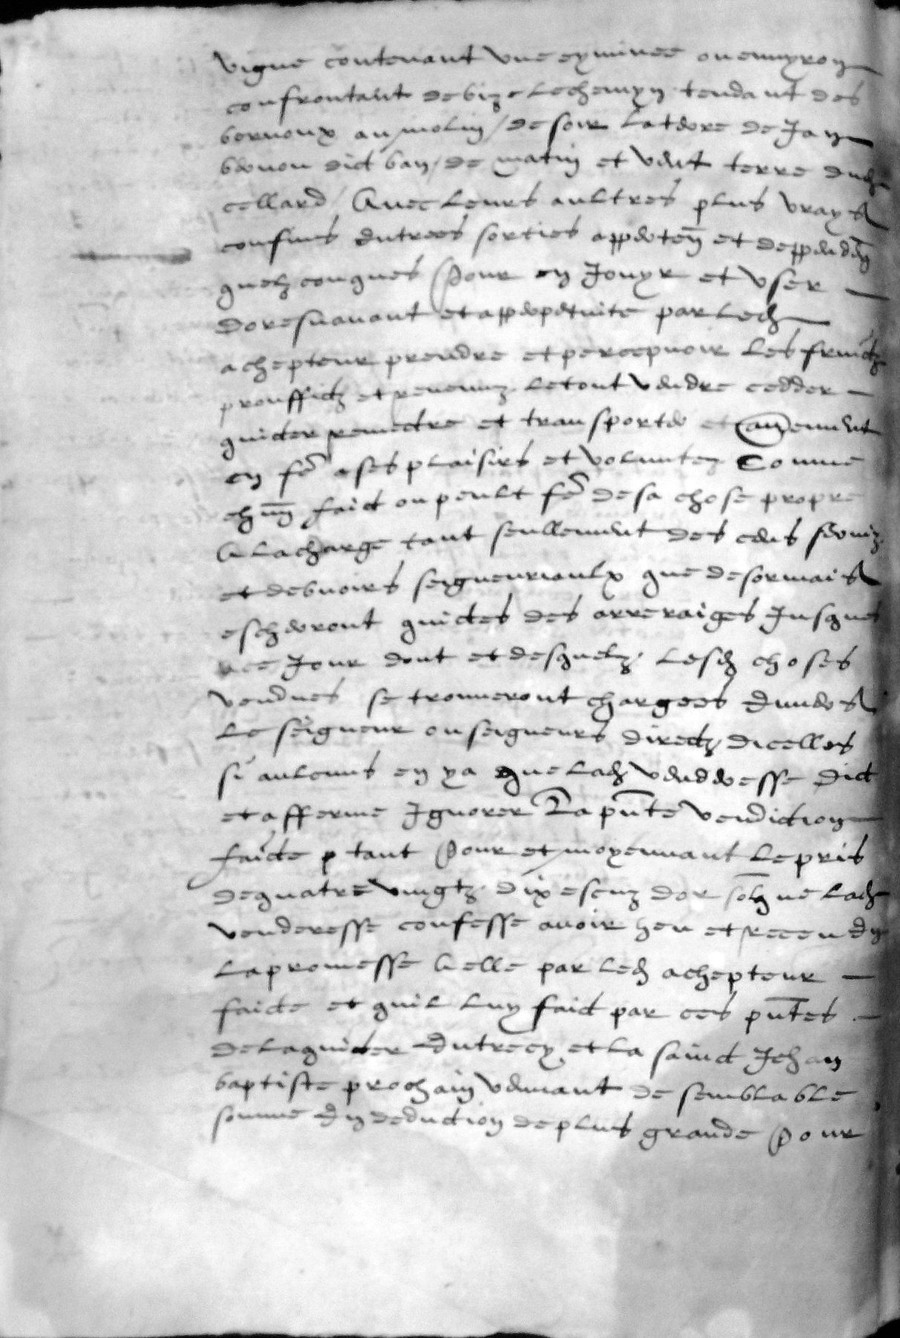 vigne contenant une eyminee ou environ
confrontant de bize le chemyn tendant des
bernoux au molin / de soir la terre de Jan
dict ban / de matin et vent terre dud
cellard / Avec leurs aultres plus vrays
confins entrees sorties apperten et deppenden
quelzconques Pour en Jouyr et user
doresnavant et a pperpetuite par led
achepteur prendre et percepvoir les fruictz
prouffictz et revenuz le tout vendre cedder
quicter remectre et transporter et aultrement
en fe a ses plaisirs et voluntez Comme
chun faict ou peult fe de sa chose propre
A la charge tant seullement des cens serviz
et debvoirs seigneuriaulx que desormais
escherront quictes des arreraiges Jusques
a ce Jour dont et desquelz lesd choses
vendues se trouveront chargees Envers
le seigneur ou seigneurs directz dicelles
si aulcuns en y a que lad venderesse dict
et afferme Ignorer La pnte vendiction
faicte p tant Pour et moyennant le pris
de quatre vingtz dix escuz dor sol que lad
venderesse confesse avoir heu et receu En
la promesse A elle par led achepteur
faicte et quil luy faict par ces pntes
de laquicter Entrecy et la sainct Jehan
baptiste prochain venant de semblable
somme En deduction de plus grande Pour